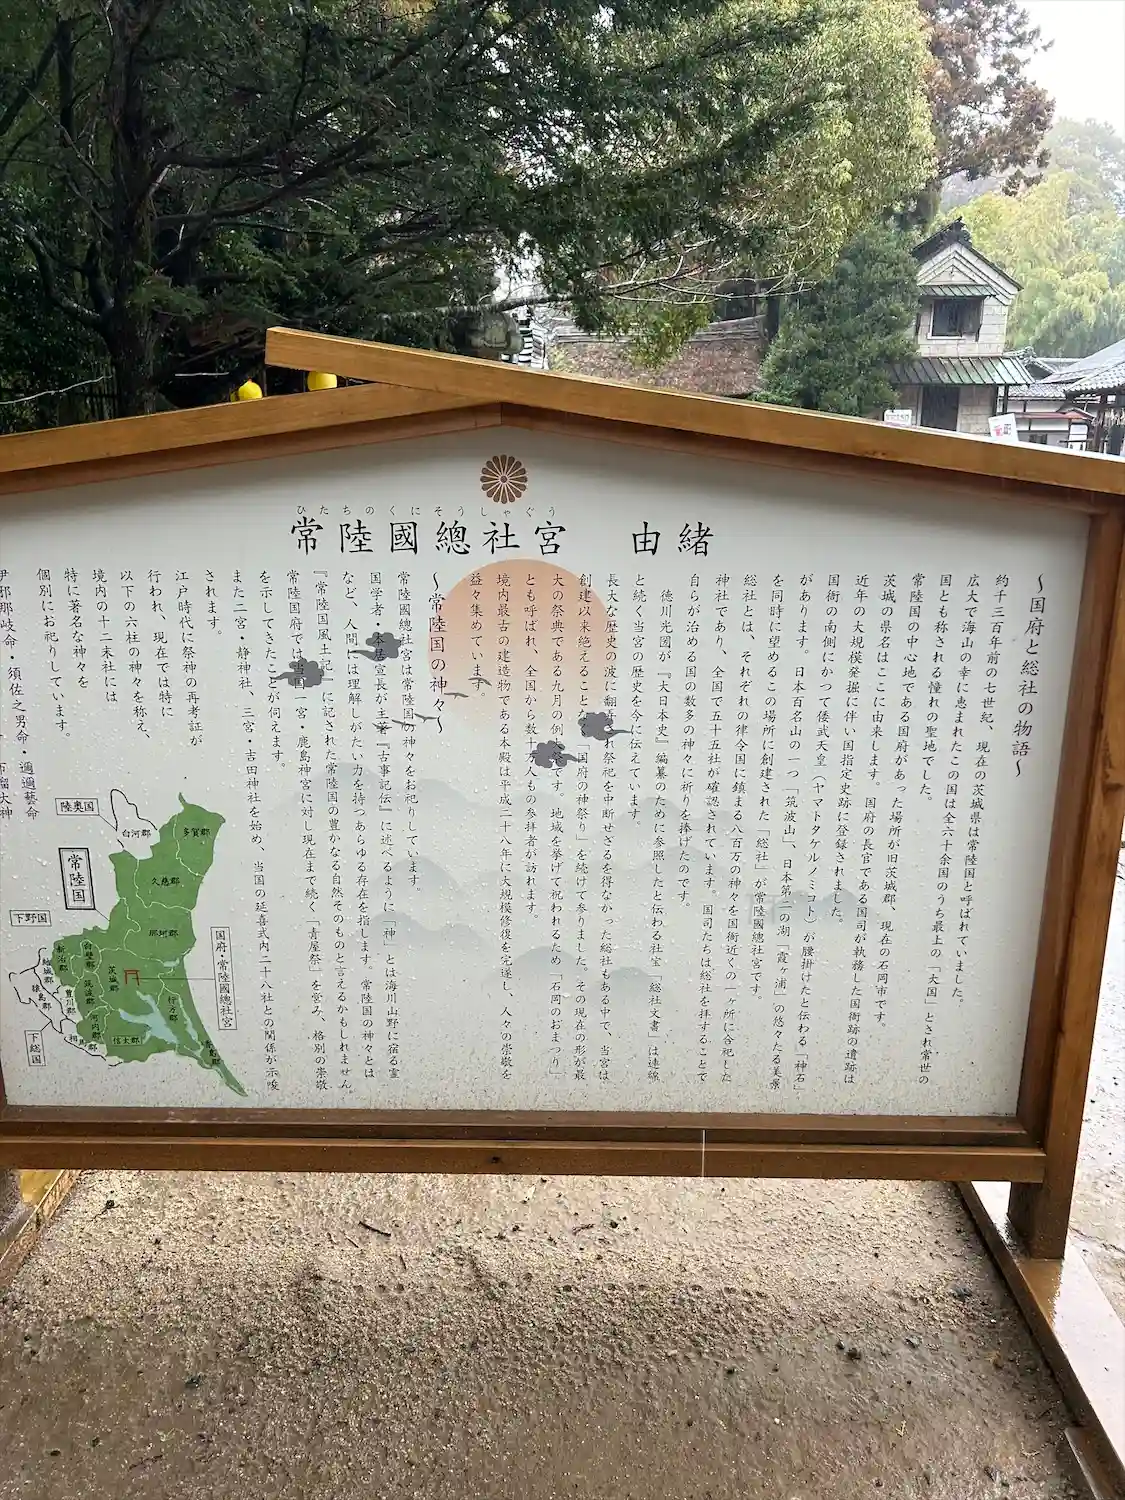 ひたちのくにそうしゃぐう
常陸國總社宮 由緒
〜国府と総社の物語〜
約千三百年前の七世紀、現在の茨城県は常陸国と呼ばれていました。
広大で海山の幸に恵まれたこの国は全六十余国のうち最上の「大国」とされ常世の
国とも称される憧れの聖地でした。
常陸国の中心地である国府があった場所が旧茨城郡、現在の石岡市です。
茨城の県名はここに由来します。国府の長官である国司が執務した国衙跡の遺跡は
近年の大規模発掘に伴い国指定史跡に登録されました。
国衙の南側にかつて倭武天皇（ヤマトタケルノミコト）が腰掛けたと伝わる「神石」
があります。日本百名山の一つ「筑波山」、日本第二の湖「霞ヶ浦」の悠々たる美景
を同時に望めるこの場所に創建された「総社」が常陸國總社宮です。
総社とは、それぞれの律令国に鎮まる八百万の神々を国衙近くの一ヶ所に合祀した
神社であり、全国で五十五社が確認されています。国司たちは総社を拝することで
自らが治める国の数多の神々に祈りを捧げたのです。
徳川光圀が『大日本史』編纂のために参照したと伝わる社宝「総社文書」は連綿
と続く当宮の歴史を今に伝えています。
長大な歴史の波に翻弄され祭祀を中断せざるを得なかった総社もある中で、当宮は
創建以来絶えることなく「国府の神祭り」を続けて参りました。その現在の形が最
大の祭典である九月の例大祭です。地域を挙げて祝われるため「石岡のおまつり」
とも呼ばれ、全国から数十万人もの参拝者が訪れます。
境内最古の建造物である本殿は平成二十八年に大規模修復を完遂し、人々の崇敬を
益々集めています。
〜常陸国の神々〜
常陸國總社宮は常陸国の神々をお祀りしています。
国学者・本居宣長が主著『古事記伝』に述べるように「神」とは海川山野に宿る霊
など、人間には理解しがたい力を持つあらゆる存在を指します。常陸国の神々とは
『常陸国風土記』に記された常陸国の豊かなる自然そのものと言えるかもしれません
常陸国府では当国一宮・鹿島神宮に対し現在まで続く「青屋祭」を営み、格別の崇敬
を示してきたことが伺えます。
また二宮・静神社、三宮・吉田神社を始め、当国の延喜式内二十八社との関係が示唆
されます。
江戸時代に祭神の再考証が
行われ、現在では特に
以下の六柱の神々を称え、
境内の十二末社には
特に著名な神々を
個別にお祀りしています。
伊邪那岐命・須佐之男命・邇邇藝命
陸奥国
白河郡
多賀郡
常陸国
久慈郡
下野国
那珂郡
国府・常陸國總社宮
新治郡
白壁郡
結城郡
筑波郡
茨城郡
猿島郡
豊田郡
河内郡
行方郡
相馬郡
信太郡
鹿島郡
下総国